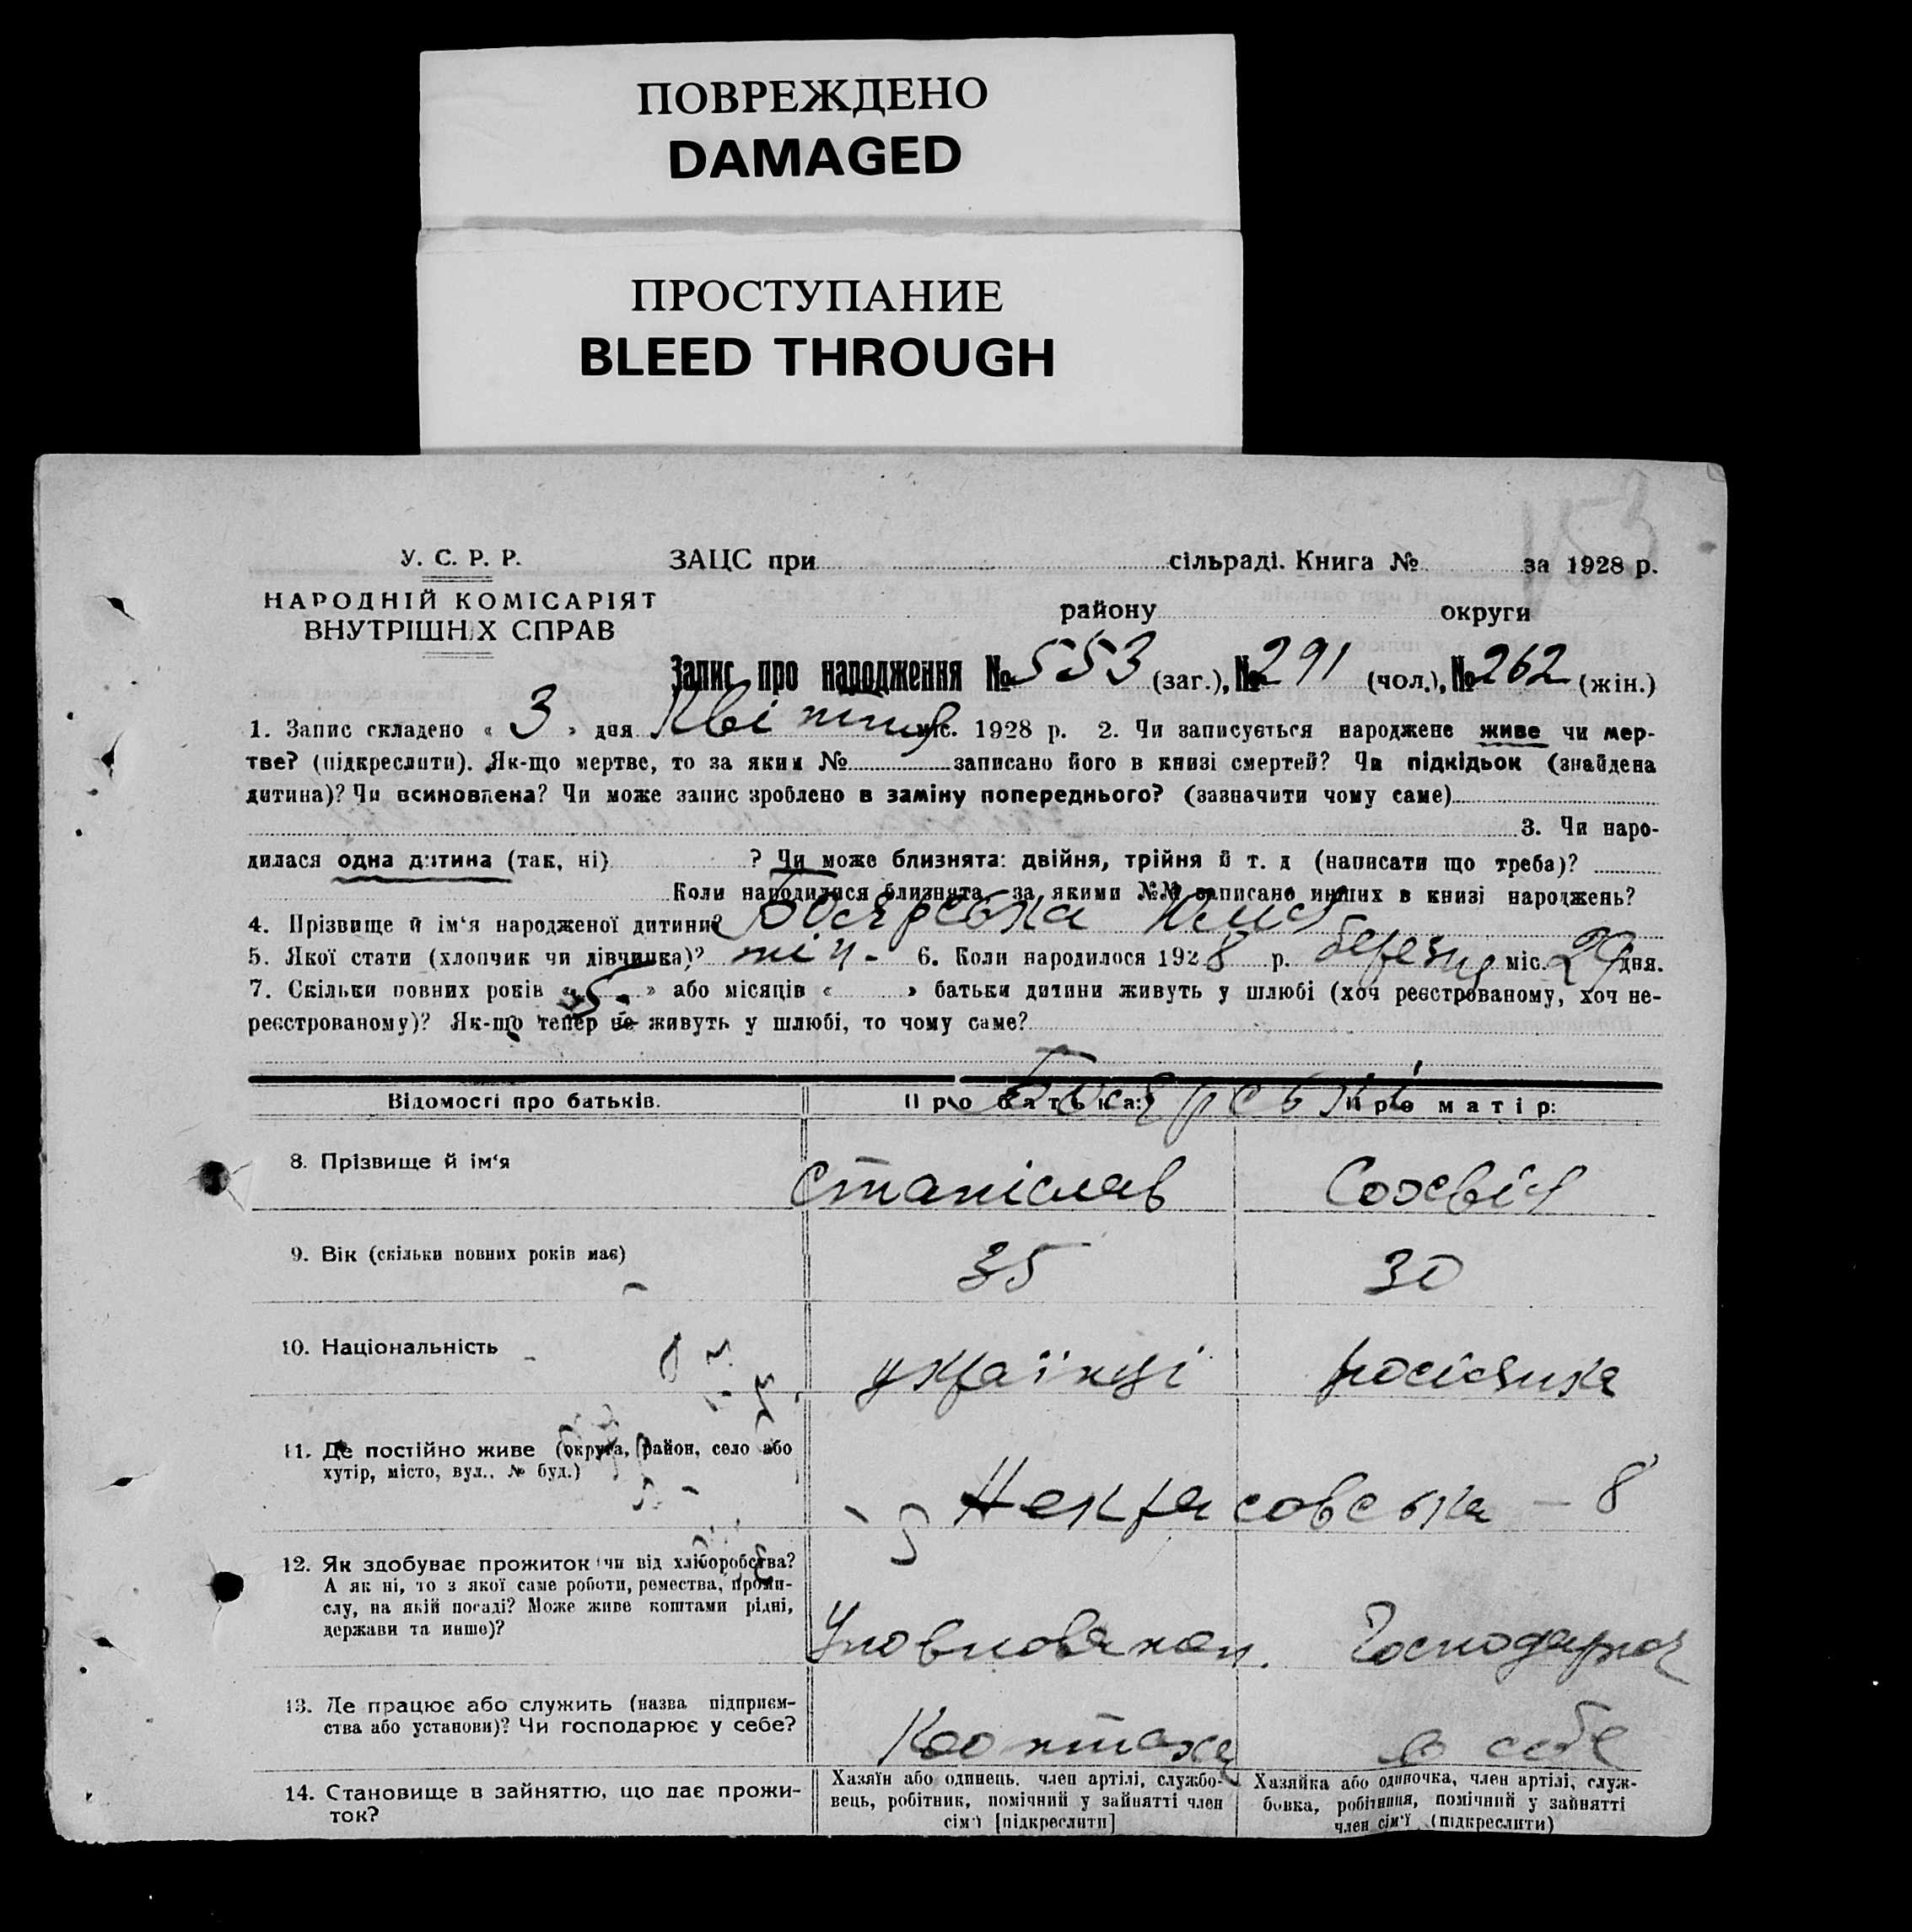 ПОВРЕЖДЕНО
DAMAGED
ПРОСТУПАНИЕ
BLEED THROUGH
153
У. С. Р. Р.
ЗАЦС при сільраді. Книга № за 1928 р.
НАРОДНІЙ КОМІСАРІЯТ
ВНУТРІШНІХ СПРАВ
району округи
Запис про народження № 553 (заг.), № 291 (чол.), № 262 (жін.)
1. Запис складено « 3 » дня Квітня міс. 1928 р. 2. Чи записується народжене живе чи мер-
тве? (підкреслити). Як-що мертве, то за яким № записано його в книзі смертей? Чи підкідьок (знайдена
дитина)? Чи всиновлена? Чи може запис зроблено в заміну попереднього? (зазначити чому саме)
3. Чи наро-
дилася одна дитина (так, ні) ? Чи може близнята: двійня, трійня й т. д (написати що треба)?
Коли народилися близнята, за якими №№ записано инших в книзі народжень?
4. Прізвище й ім'я народженої дитини? Боярська
5. Якої стати (хлопчик чи дівчинка)? жін. 6. Коли народилося 1928 р. березня міс. 29 дня.
7. Скільки повних років « 5 » або місяців « » батьки дитини живуть у шлюбі (хоч реєстрованому, хоч не-
реєстрованому)? Як-що тепер не живуть у шлюбі, то чому саме?
Боярські
Відомості про батьків. Про батька: Про матір:
8. Прізвище й ім'я Станіслав
9. Вік (скільки повних років має) 35 30
10. Національність українці росіянка
11. Де постійно живе (округа, район, село або
хутір, місто, вул., № буд.)
Некрасовська – 8
12. Як здобуває прожиток чи від хліборобства?
А як ні, то з якої саме роботи, ремества, проми-
слу, на якій посаді? Може живе коштами рідні,
держави та инше)?
Уповноважен. Господарює
13. Де працює або служить (назва підприєм-
ства або установи)? Чи господарює у себе?
в себе
14. Становище в зайняттю, що дає прожи-
ток?
Хазяїн або одинець, член артілі, службо-
вець, робітник, помічний у зайнятті член
сім'ї [підкреслити]
Хазяйка або одиночка, член артілі, служ-
бовка, робітниця, помічний у зайнятті
член сім'ї (підкреслити)